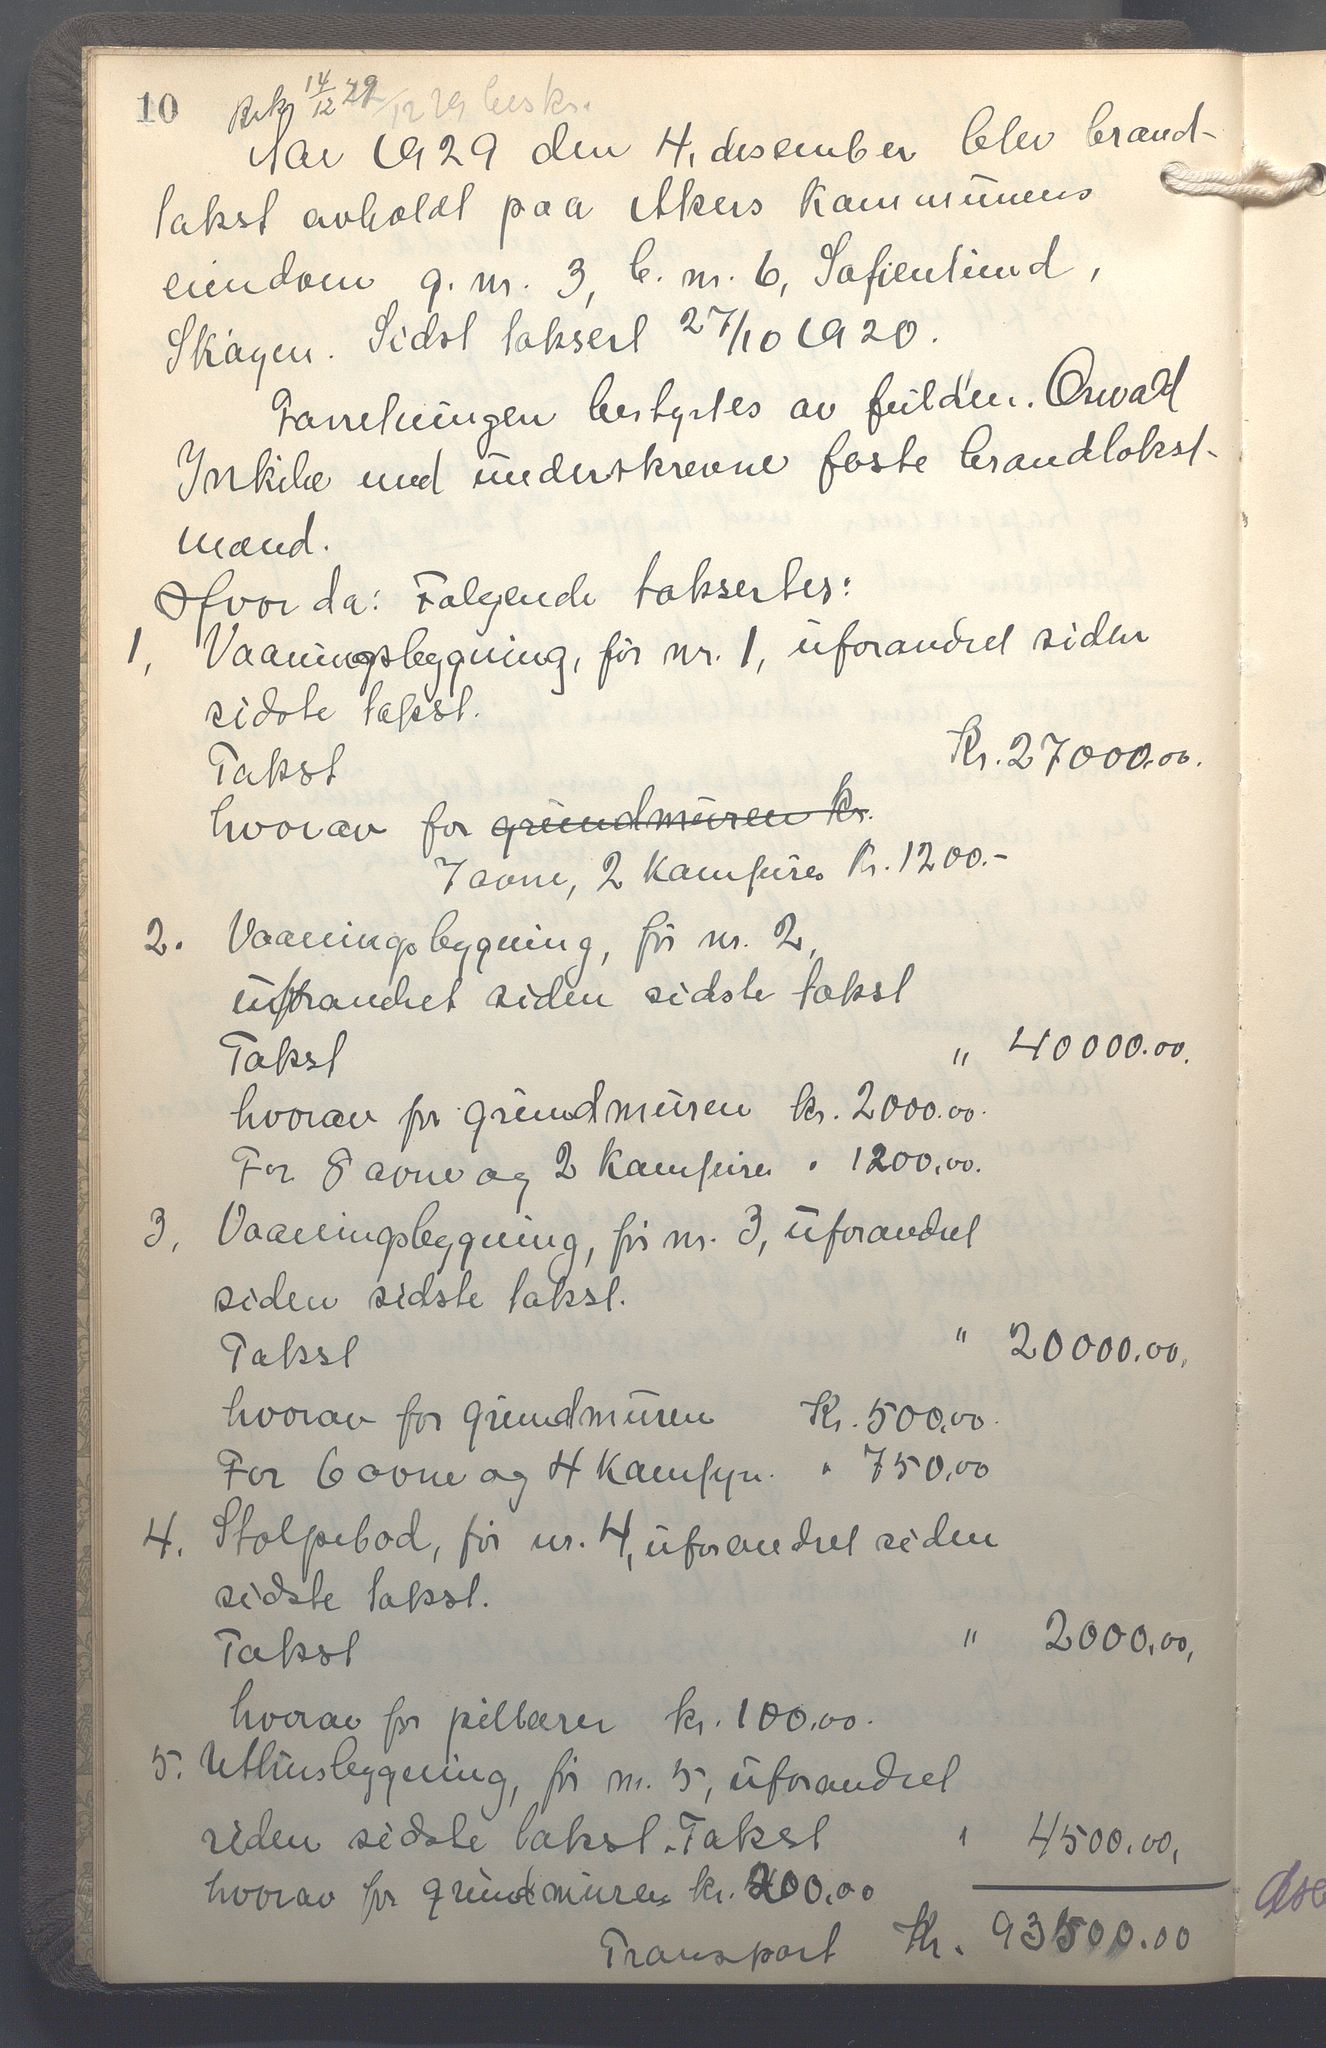 10
14/12 29 /12 29 beskr.
Aar 1929 den 4. desember blev brand-
takst avholdt paa Akers kommunens
eiendom g. nr. 3, b. nr. 6, Sofienlund,
Skøyen. Sidst taksert 27/10 1920.
Forretningen bestyrtes av fuldm. Oswald
med underskrevne faste brandtakst-
mænd.
Hvorda: Følgende taksertes:
1, Vaaningsbygning, før nr. 1, uforandret siden
sidste takst.
Takst Kr. 27000.00.
hvorav for grundmuren kr.
7 ovne, 2 Kamfire Kr. 1200.-
2. Vaaningsbygning, før nr. 2,
uforandret siden sidste takst
Takst " 40000.00.
hvorav for grundmuren kr. 2000.00.
For 8 ovne og 2 Kamfirer " 1200.00.
3, Vaaningsbygning, før nr. 3, uforandret
siden sidste takst.
Takst " 20000.00.
hvorav for grundmuren Kr. 500.00.
For 6 ovne og 4 Kamfyr. " 750.00
4. Stolpebod, før nr. 4, uforandret siden
sidste takst.
Takst " 2000.00,
hvorav for pillarer kr. 100.00.
5. Uthusbygning, før nr. 5, uforandret
siden sidste takst. Takst " 4500.00,
hvorav for grundmuren kr. 200.00
Transport Kr. 93500.00